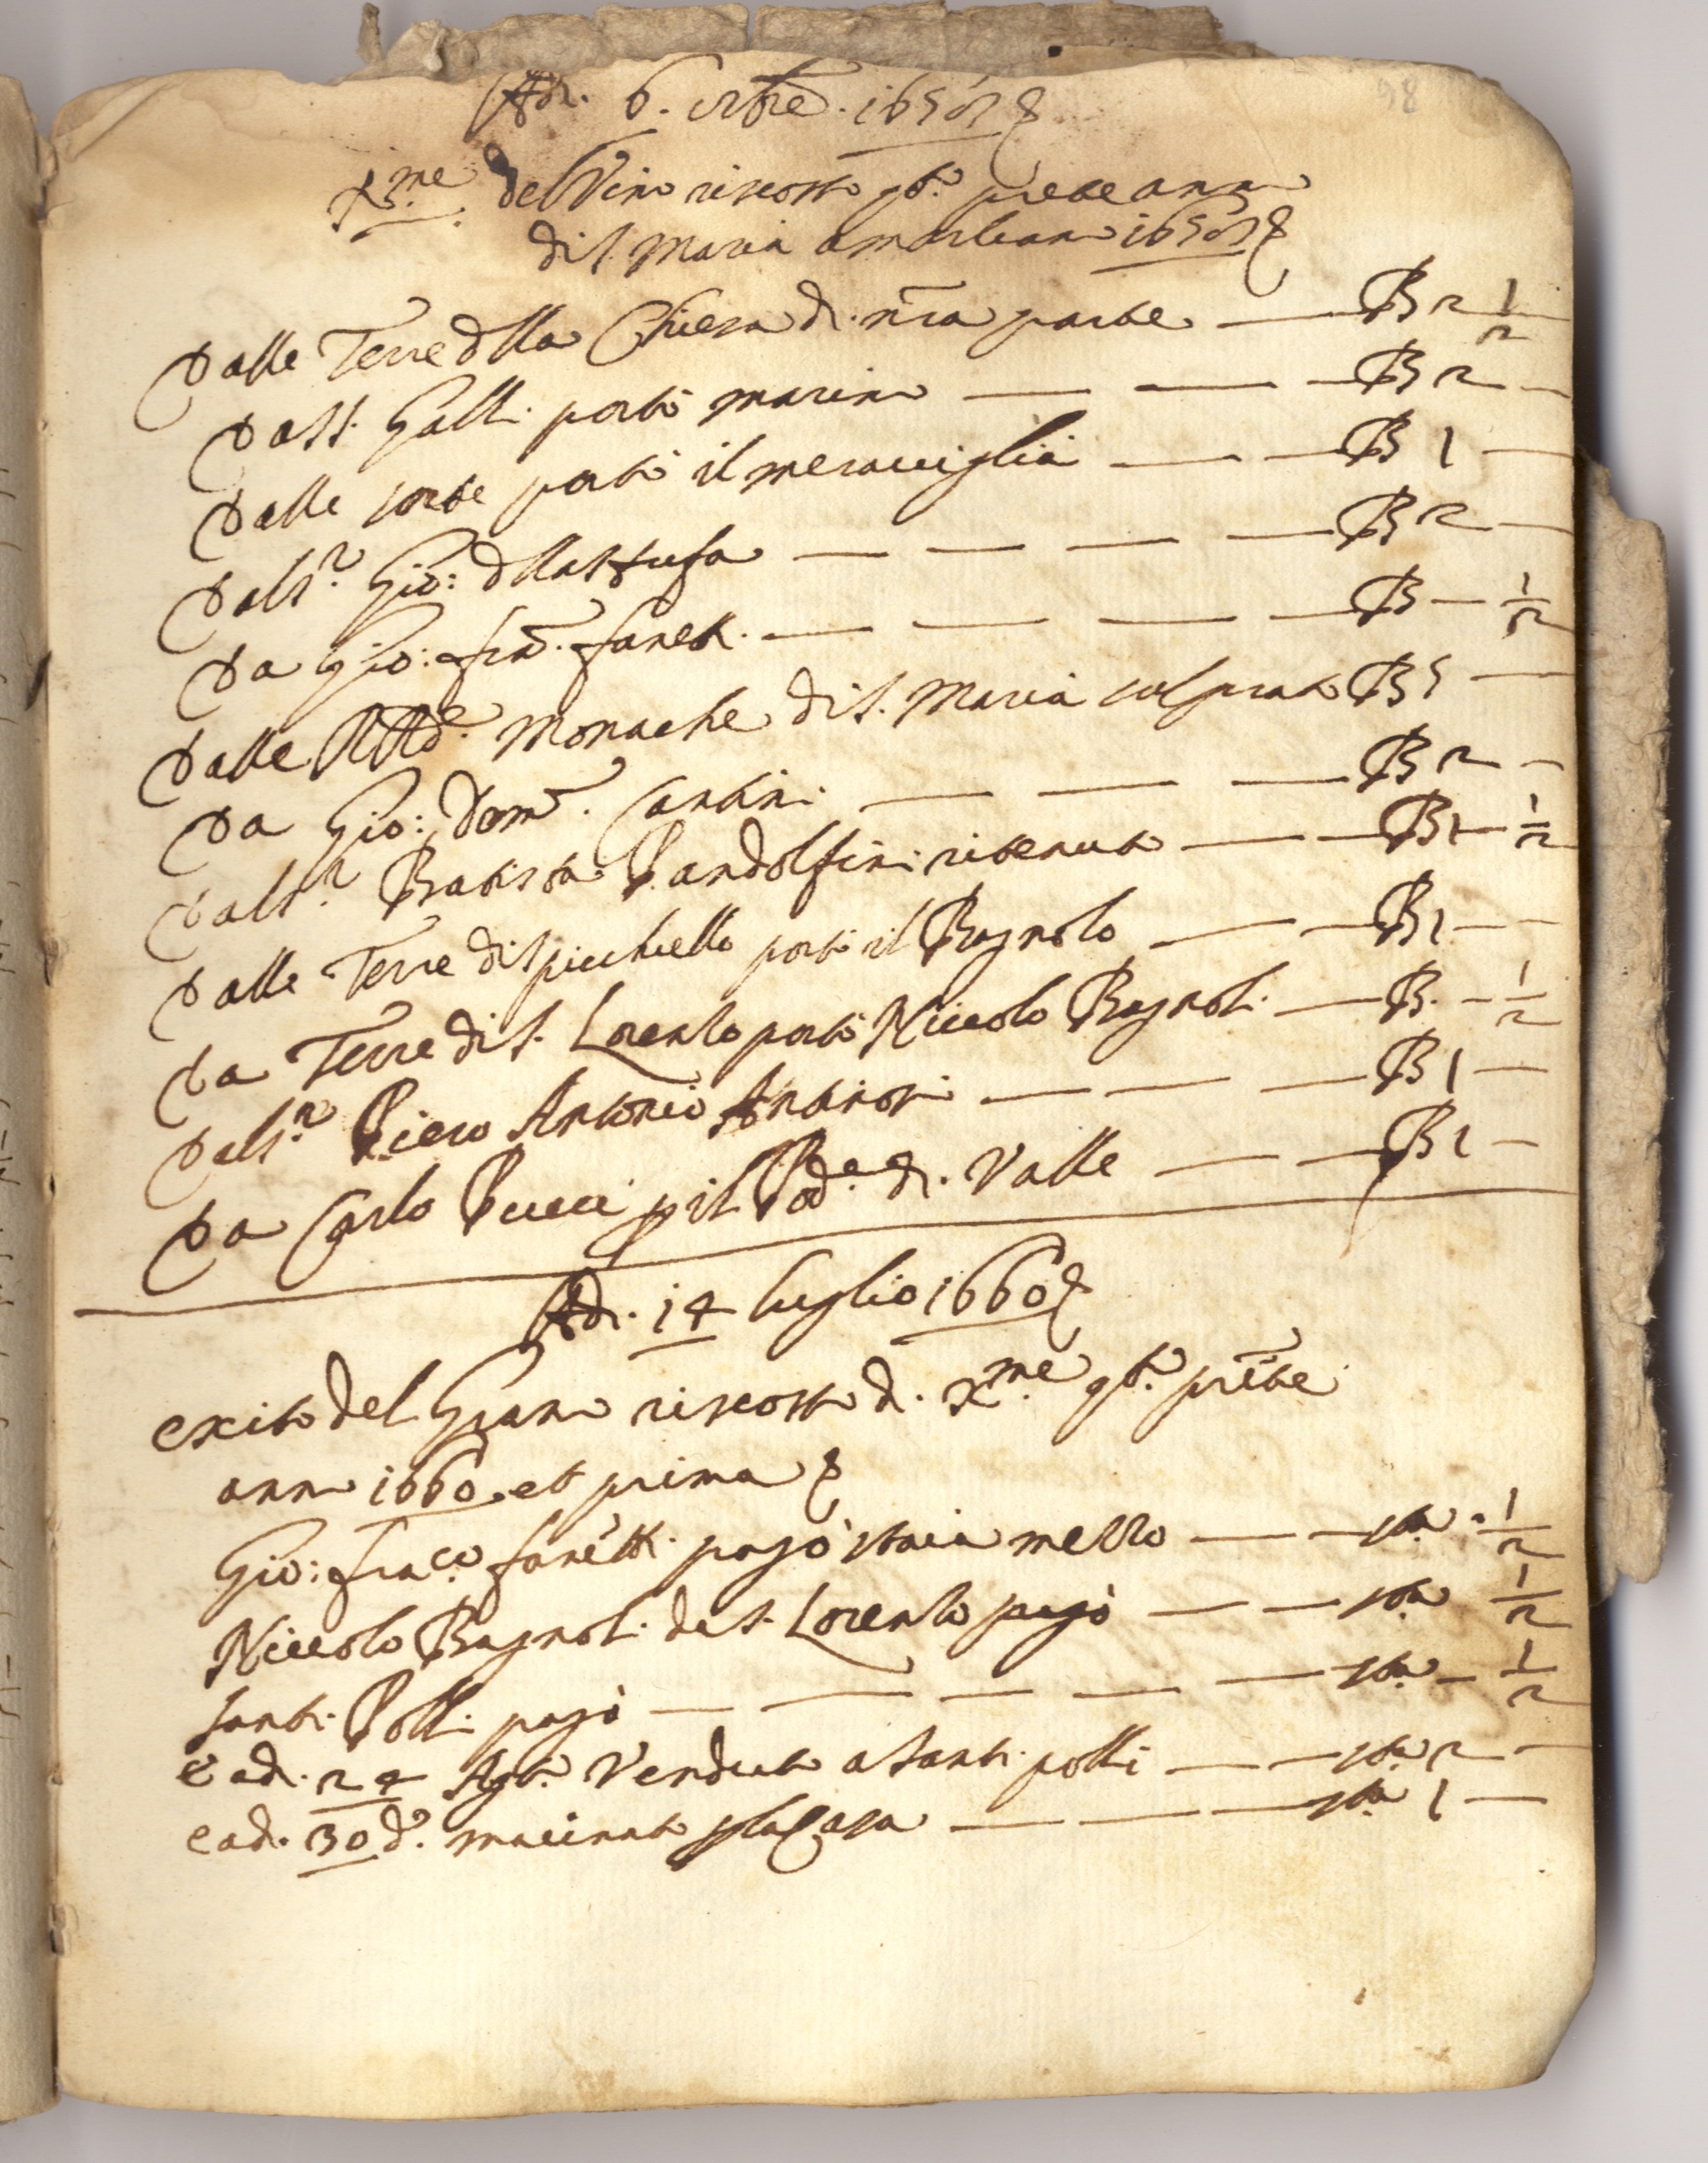 Adi. 6. 8bre. 1659
Xme. del Vino riscosso qto. preste anno
di S. Maria a Morliano 1659
Dalle Terre dlla Chiesa di. nra parte — B 2 1/2
Da SS. Galli portò marino — — B 2 —
Dalle porte portò il meraviglia — — B 1 —
Dal Sr. Gio: dlla Stufa — — — — B 2 —
Da Gio: fra. fanetti. — — — — B — 1/2
Dalle RRde. Monache di S. Maria sul prato B 5 —
Da Gio: Dom. Cantini — — — B 2 —
Dal Sr. Batista Pandolfini ritenuto — — B 1 — 1/2
Dalle Terre di Spicchiello portò il Bagnolo — — B 1 — —
Da Terre di S. Lorenzo portò Niccolo Bagnoli — B. — 1/2
Dal Sr. Piero Antonio Antinori — — — B 1 —
Da Carlo Pucci p il Pode. di. Valle — — B 1 —
Adi. 14 luglio 1660
exito del Grano riscosso d. Xme. qto. prēte
anno 1660 et prima
Gio: Fraco. fanetti. pagò staia mezzo — — sta. 1/2
Niccolo Bagnoli. da S. Lorenzo pagò — — sta 1/2
Santi. Polli. pagò — — — — — sta. — 1/2
e adi. 24 Agto. Venduto a Santi. polli — — sta. 2 —
e adi. 30 do. macinato p la Casa — — — sta 1 —